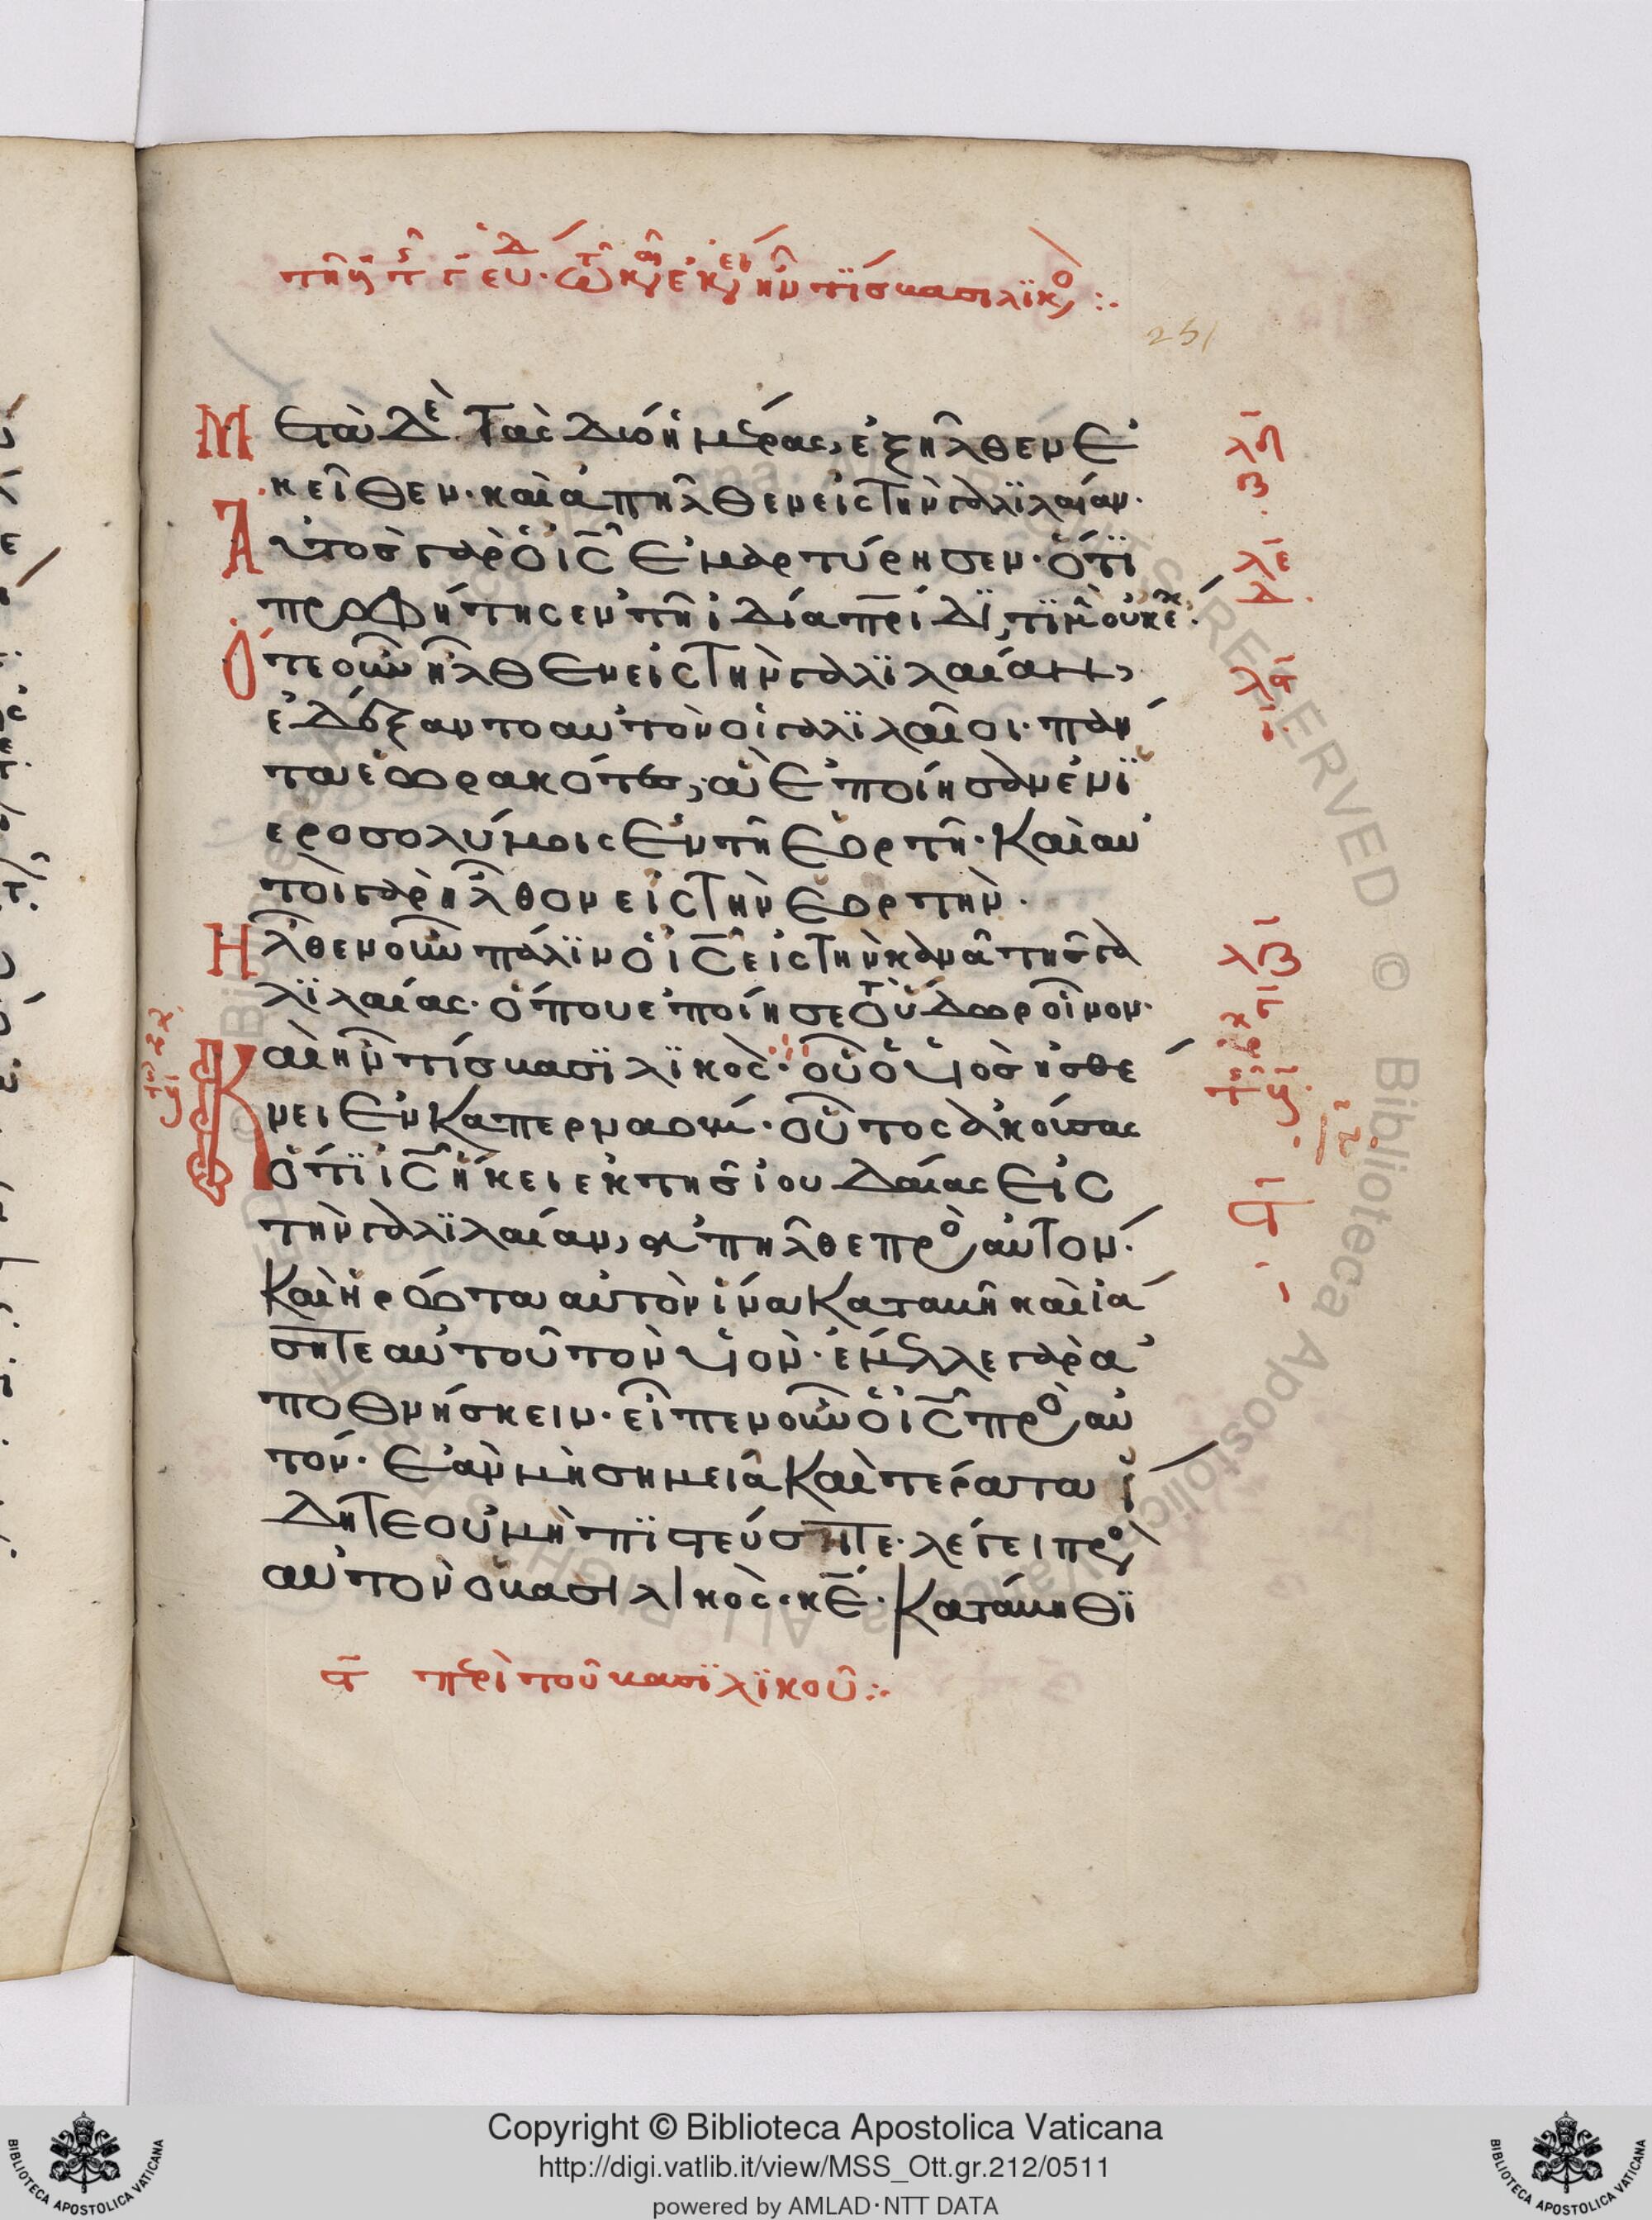 251
Μετὰ δὲ τὰς δύο ἡμέρας, ἐξῆλθεν ἐ
κεῖθεν· καὶ ἀπῆλθεν εἰς τὴν γαλϊλαίαν·
Αὐτὸς γὰρ ὁ ι̅ς̅ ἐμαρτύρησεν· ὅτϊ
προφήτης ἐν τῆ ἰδία π̅ρ̅ίδϊ, τϊμὴν οὐκ ἔχ·
Ὅτε οὖν ἦλθεν εἰς τὴν γαλϊλαίαν,
ἐδέξαντο αὐτὸν οἱ γαλϊλαῖοι· πάν
τα ἑωρακότες, ἃ ἐποίησεν ἐν ϊ
εροσολύμοις ἐν τῆ ἑορτῆ· Καὶ αὐ
τοὶ γὰρ ἦλθον εἰς τὴν ἑορτήν·
Ἦλθεν οὖν πάλϊν ὁ ι̅ς̅ εἰς τὴν κανᾶ τῆς γα
λϊλαίας· ὅπου ἐποίησε τὸ ὕδωρ οἶνον·
Καὶ ἦν τίς βασϊλϊκὸς· οὗ ὁ υἱὸς ἠσθέ
νει ἐν Καπερναούμ· οὗτος ἀκούσας
ὅτϊ ι̅ς̅ ἥκει ἐκ τῆς ἰουδαίας εἰς
τὴν γαλϊλαίαν, ἀπῆλθε πρὸς αὐτόν·
Καὶ ἠρώτα αὐτὸν ἵνα Καταβῆ καὶ ἰά
σητε αὐτοῦ τὸν υἱόν· ἔμελλε γὰρ ἀ
ποθνήσκειν· εἶπεν οὖν ὁ ι̅ς̅ πρὸς αὐ
τόν· Ἐὰν μὴ σημεῖα Καὶ τέρατα ἴ
δητε οὐ μὴ πϊστεύσητε· λέγει πρὸς
αὐτὸν ὁ βασιλικὸς· κ̅ε̅· Κατάβηθϊ
περὶ τοῦ βασϊλϊκοῦ
Copyright © Biblioteca Apostolica Vaticana
http://digi.vatlib.it/view/MSS_Ott.gr.212/0511
powered by AMLAD·NTT DATA